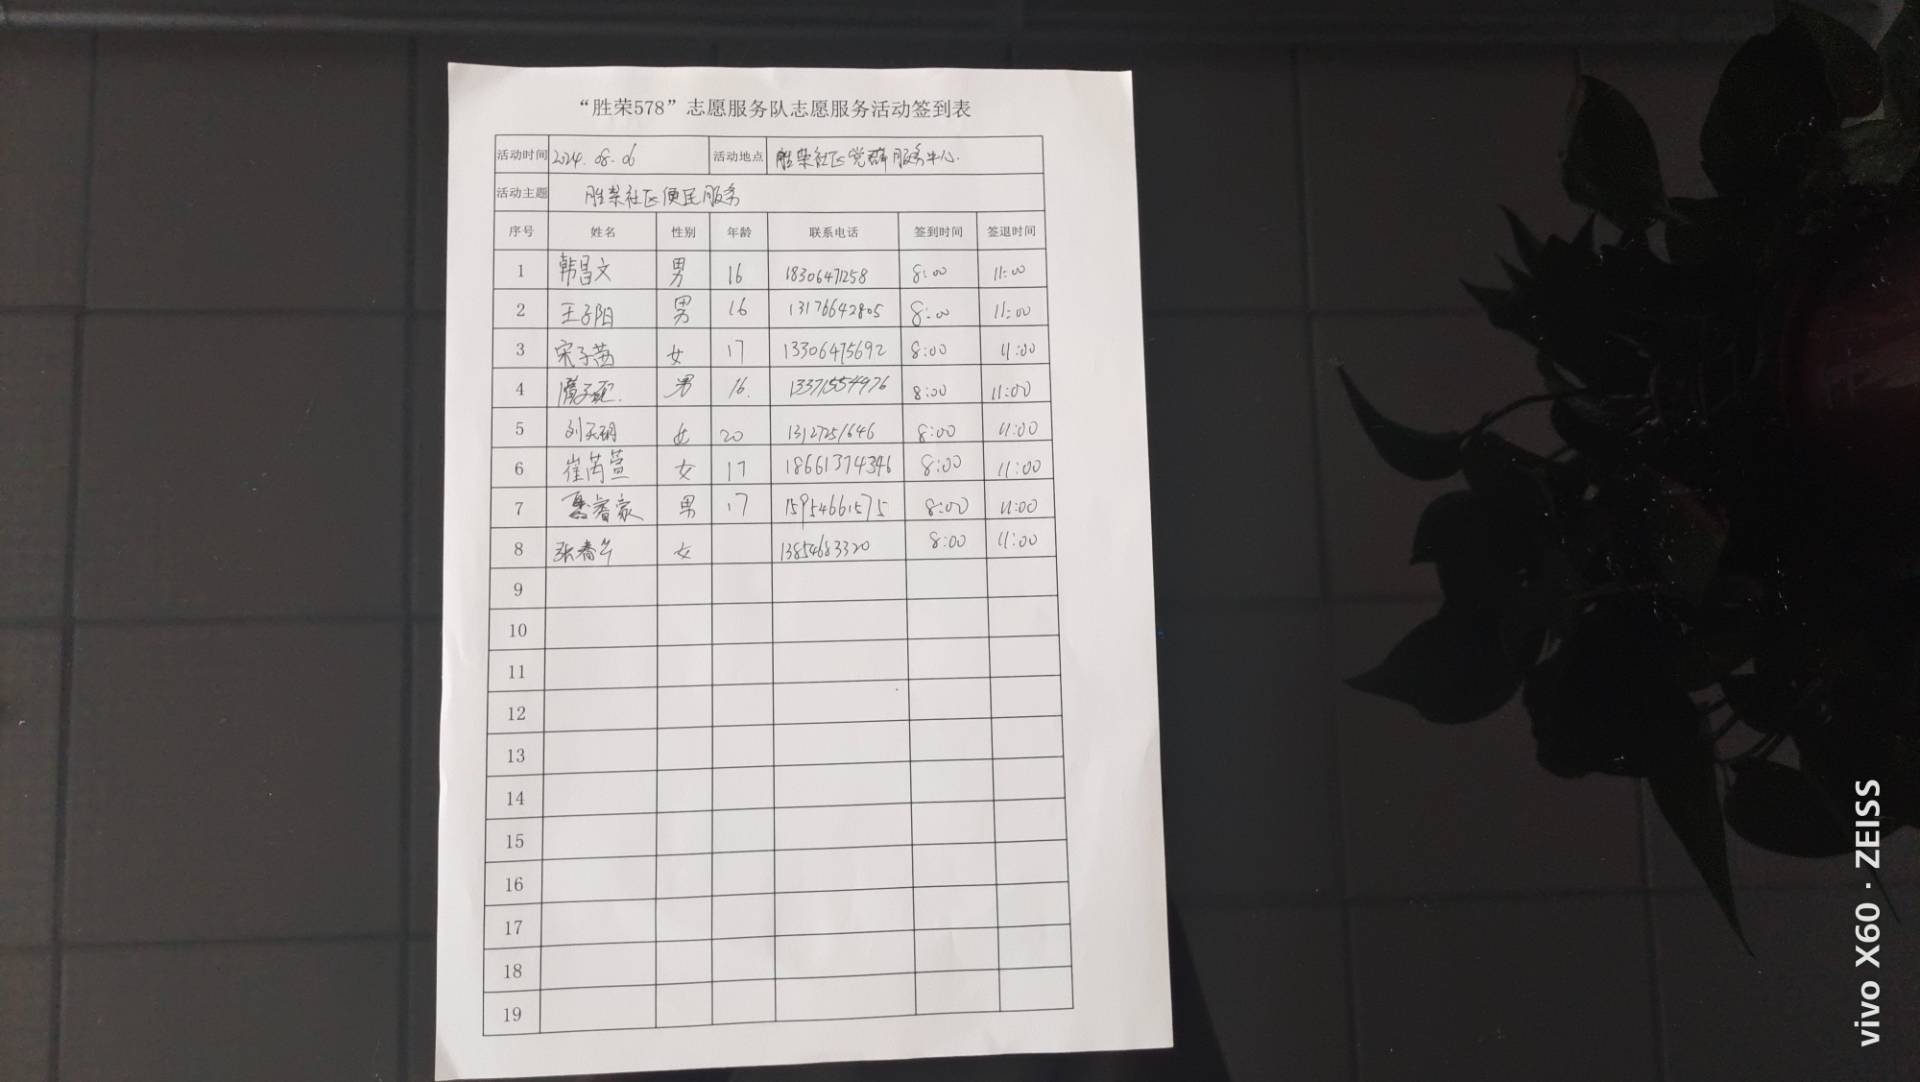 “胜荣578”志愿服务队志愿服务活动签到表
活动时间 2024.08.06 活动地点 胜荣社区党群服务中心.
活动主题 胜荣社区便民服务
序号 姓名 性别 年龄 联系电话 签到时间 签退时间
1 韩昌文 男 16 18306471258 8:00 11:00
2 王子阳 男 16 13176642805 8:00 11:00
3 宋子茜 女 17 13306475692 8:00 11:00
4 男 16. 13371554976 8:00 11:00
5 女 20 13127251646 8:00 11:00
6 崔芮萱 女 17 18661374346 8:00 11:00
7 男 17 15954661575 8:00 11:00
8 女 13854683320 8:00 11:00
9
10
11
12
13
14
15
16
17
18
19
vivo X60 · ZEISS